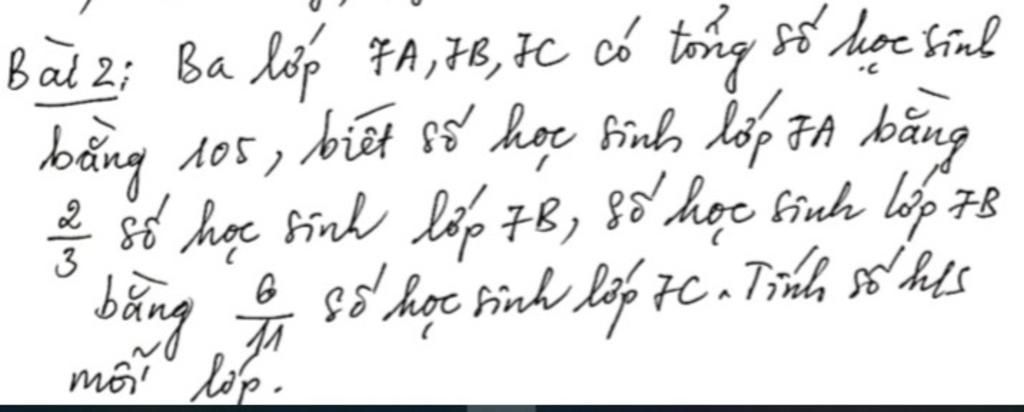 Bài 2: Ba lớp 7A, 7B, 7C có tổng số học sinh
bằng 105, biết số học sinh lớp 7A bằng
2/3 số học sinh lớp 7B, số học sinh lớp 7B
bằng 6/11 số học sinh lớp 7C. Tính số h/s
mỗi lớp.